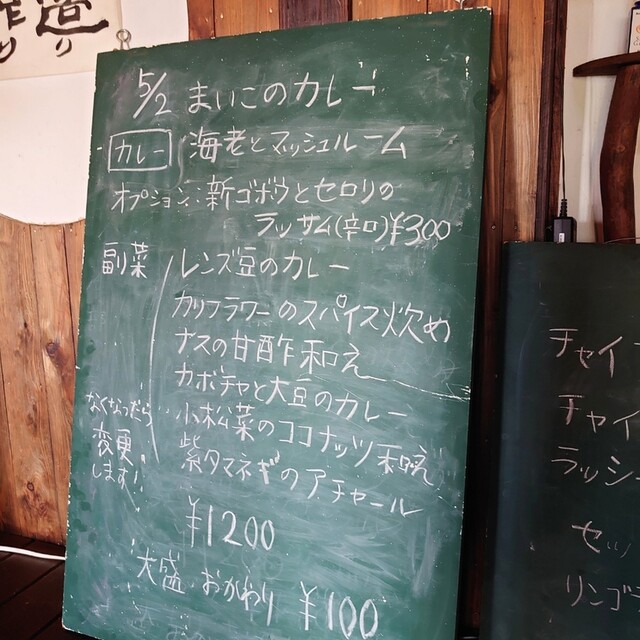 造り
作り
5/2 まいこのカレー
カレー 海老とマッシュルーム
オプション:新ゴボウとセロリの
ラッサム(辛口)¥300
副菜 レンズ豆のカレー
カリフラワーのスパイス炒め
ナスの甘酢和え
カボチャと大豆のカレー
小松菜のココナッツ和え
紫タマネギのアチャール
なくなったら
変更
します!!
¥1200
大盛 おかわり ¥100
チャイ
チャイ
ラッシー
セッ
リンゴ